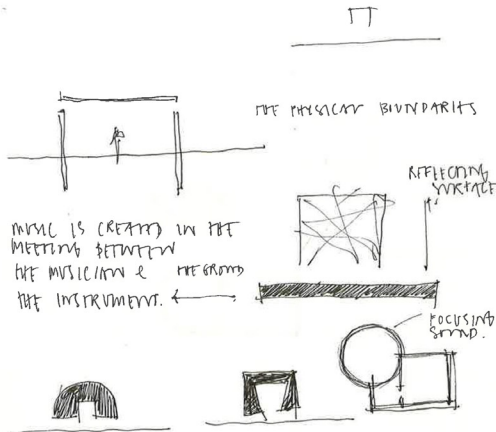 THE PHYSICAL BOUNDARIES
REFLECTING
SURFACE
MUSIC IS CREATED IN THE
MEETING BETWEEN
THE MUSICIAN & THE GROUND
THE INSTRUMENT.
FOCUSING
SOUND.